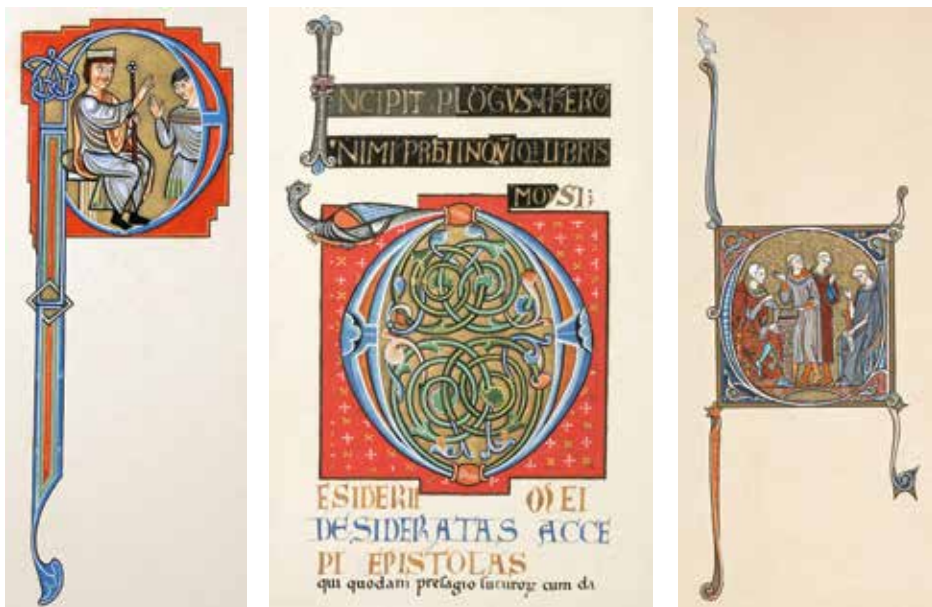 INCIPIT PLOGVS IHERO
NIMI PRBI IN QVIQ LIBRIS
MOYSI;
DESIDERII MEI
DESIDERATAS ACCE
PI EPISTOLAS
qui quodam presagio futuroꝝ cum da